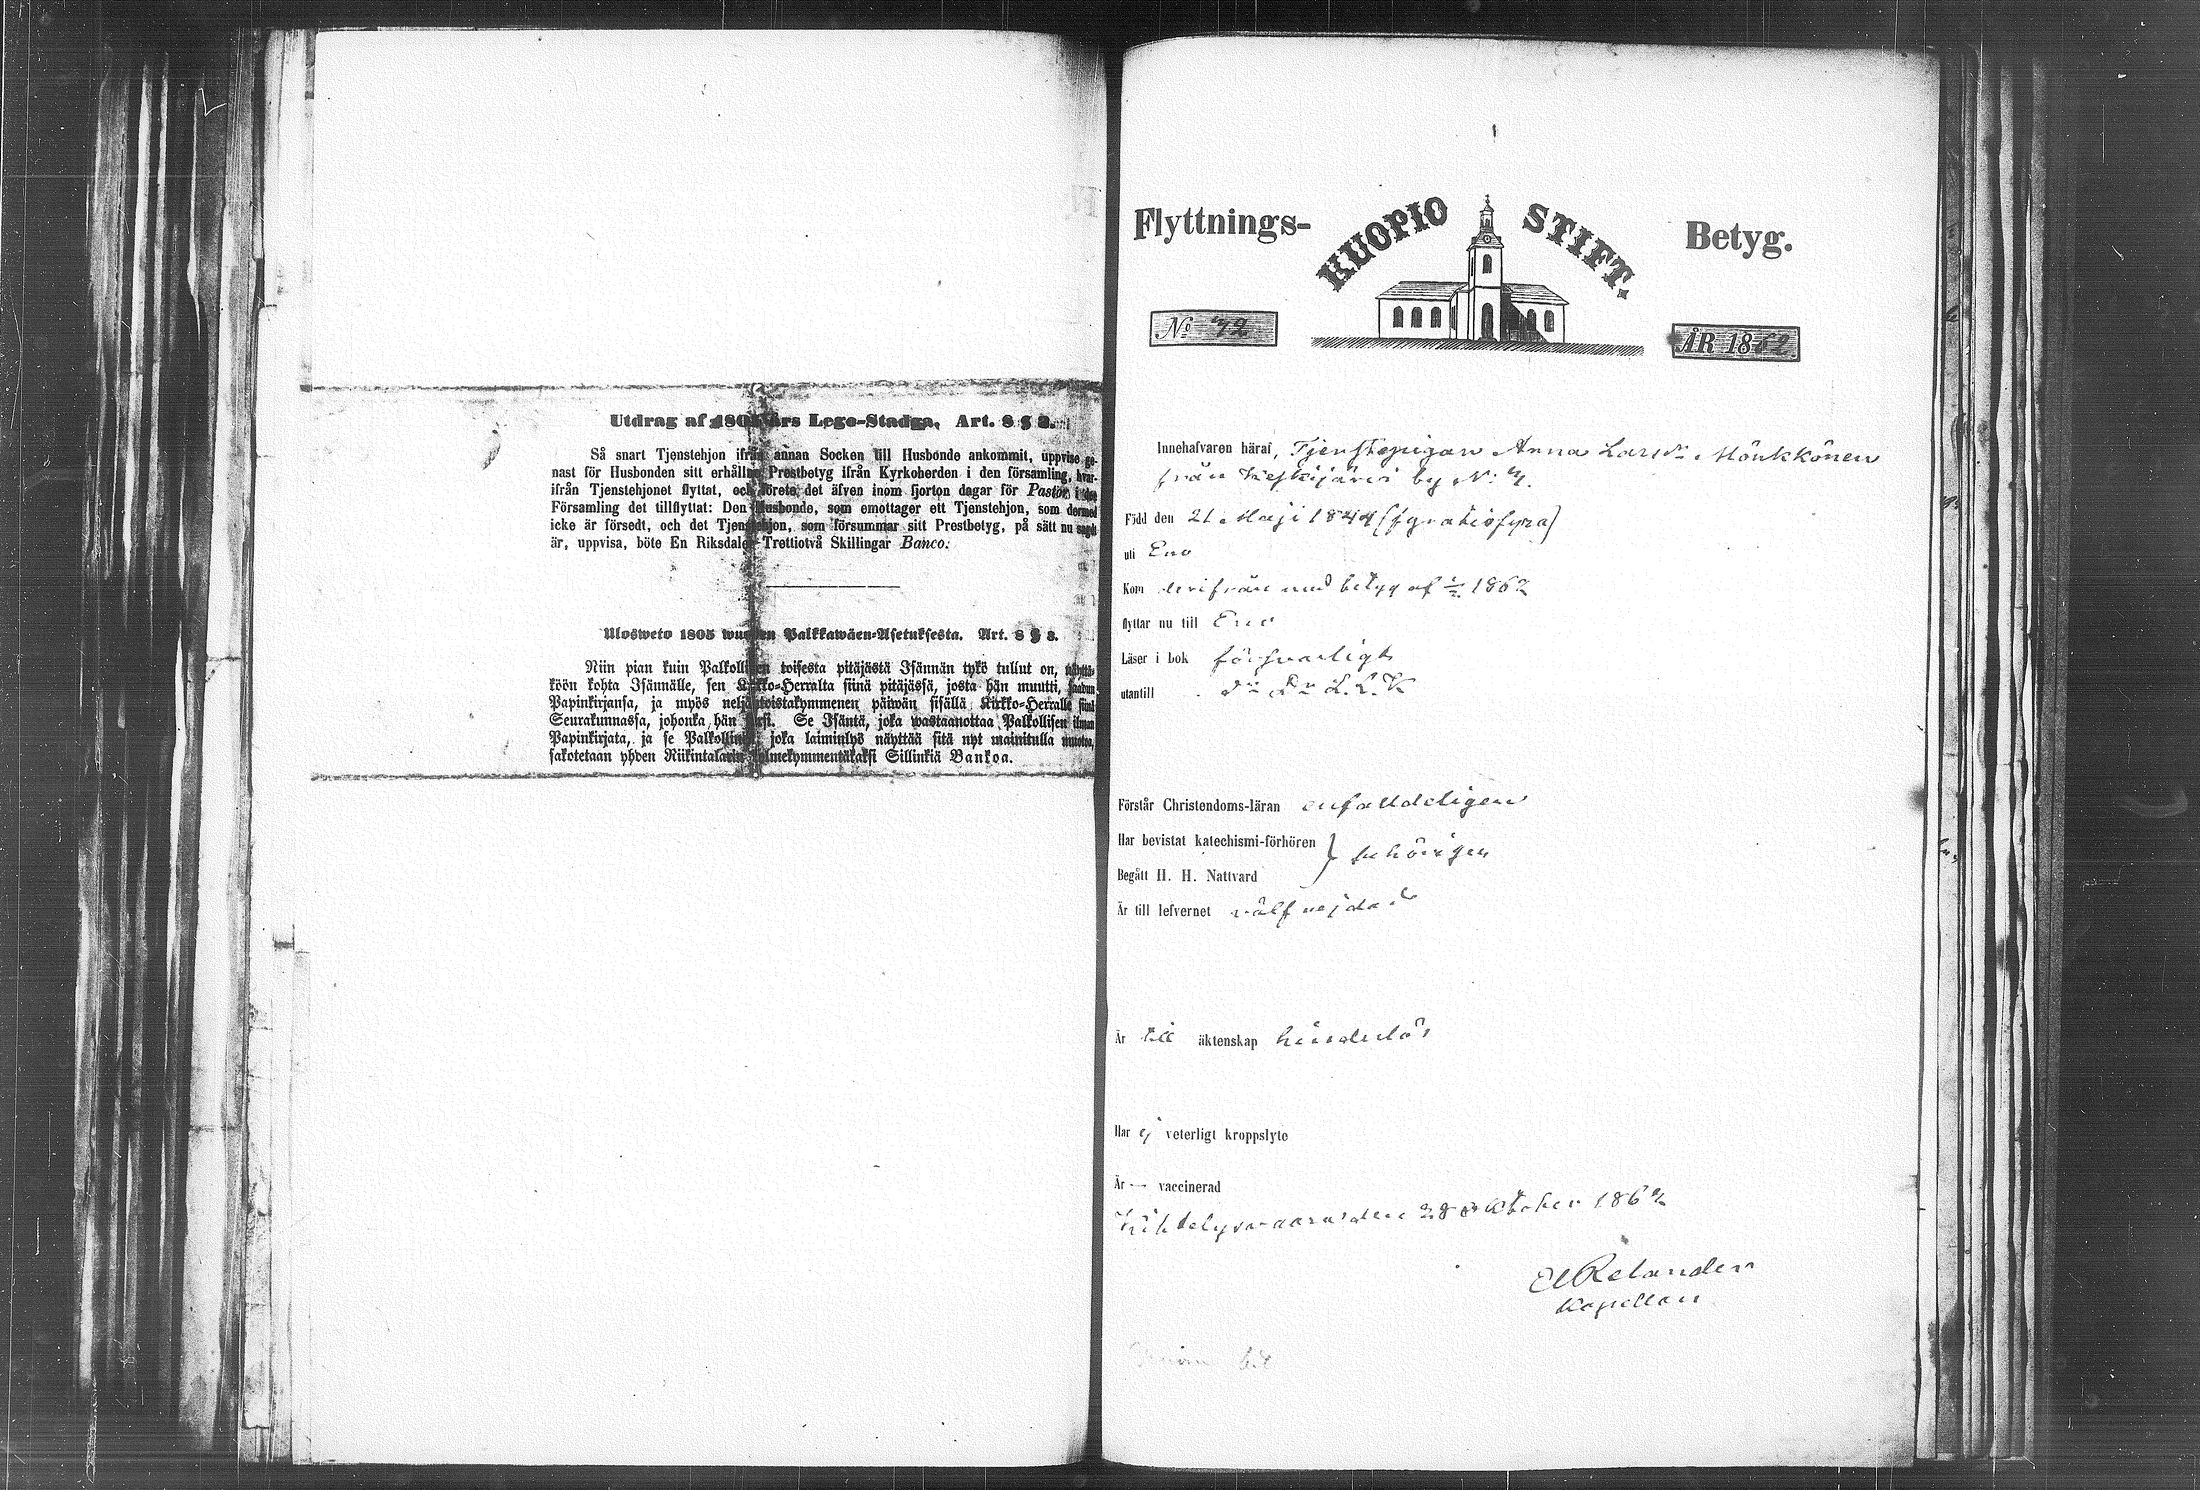 Utdrag af 1805 års Lego-Stadga, Art. 8 § 3.
Så snart Tjenstehjon ifrån annan Socken till Husbonde ankommit, uppvise ge-
nast för Husbonden sitt erhållna Prestbetyg ifrån Kyrkoherden i den församling, hvar-
ifrån Tjenstehjonet flyttat, och förete det äfven inom fjorton dagar för Pastor i den
Församling det tillflyttat: Den Husbonde, som emottager ett Tjenstehjon, som dermed
icke är försedt, och det Tjenstehjon, som försummar sitt Prestbetyg, på sätt nu sagdt
är, uppvisa, böte En Riksdaler Trettiotvå Skillingar Banco.
Ulosweto 1805 wuoden Palkkawäen-Asetuksesta. Art. 8 § 3.
Niin pian kuin Palkollinen toisesta pitäjästä Isännän tykö tullut on, näyttä-
köön kohta Isännälle, sen Kirkko-Herralta siinä pitäjässä, josta hän muutti, saadun
Papinkirjansa, ja myös neljäntoistakymmenen päiwän sisällä Kirkko-Herralle siinä
Seurakunnassa, johonka hän tuli. Se Isäntä, joka wastaanottaa Palkollisen ilman
Papinkirjata, ja se Palkollinen, joka laiminlyö näyttää sitä nyt mainitulla muotoa,
sakotetaan yhden Riikintalarin kolmekymmentäkaksi Sillinkiä Bankoa.
Flyttnings- KUOPIO STIFT. Betyg.
No 72 ÅR 1862
Innehafvaren häraf, Tjenstepigan Anna Larsdr Mönkkönen
från Keskijärvi by N: 4.
Född den 21 Maji 1844 (fyratiofyra)
uti Eno
Kom derifrån med betyg af 1862
flyttar nu till Eno
Läser i bok försvarligt
utantill do Dn L. L. K
Förstår Christendoms-läran enfalldeligen
Har bevistat katechismi-förhören } behörigen
Begått H. H. Nattvard
Är till lefvernet välfrejdad
Är till äktenskap hinderlös
Har ej veterligt kroppslyte
Är — vaccinerad
Kihtelysvaara den 28 Oktober 1862
Relander
Kapellan